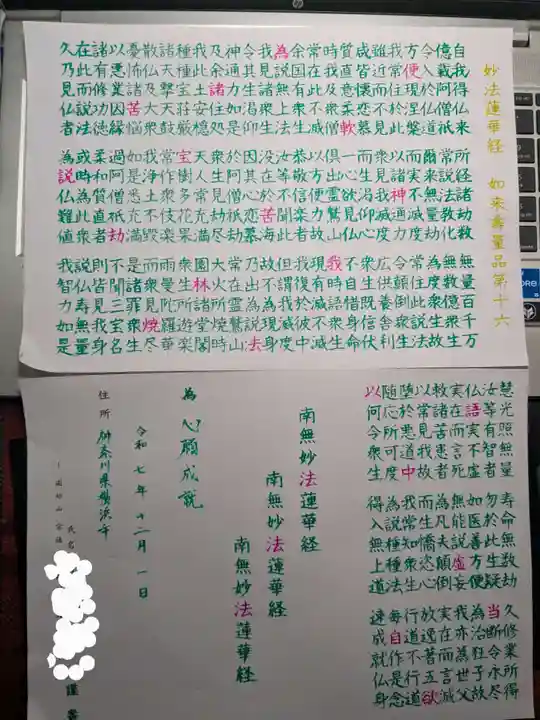 妙法蓮華経　如来寿量品第十六
自我得仏来　所経諸劫数　無量百千万
億載阿僧祇　常説法教化　無数億衆生
令入於仏道　爾来無量劫　為度衆生故
方便現涅槃　而実不滅度　常住此説法
我常住於此　以諸神通力　令顛倒衆生
雖近而不見　衆見我滅度　広供養舎利
咸皆懐恋慕　而生渇仰心　衆生既信伏
質直意柔軟　一心欲見仏　不自惜身命
時我及衆僧　倶出霊鷲山　我時語衆生
常在此不滅　以方便力故　現有滅不滅
余国有衆生　恭敬信楽者　我復於彼中
為説無上法　汝等不聞此　但謂我滅度
我見諸衆生　没在於苦海　故不為現身
令其生渇仰　因其心恋慕　乃出為説法
神通力如是　於阿僧祇劫　常在霊鷲山
及余諸住処　衆生見劫尽　大火所焼時
我此土安穏　天人常充満　園林諸堂閣
種種宝荘厳　宝樹多花果　衆生所遊楽
諸天撃天鼓　常作衆伎楽　雨曼陀羅華
散仏及大衆　我浄土不毀　而衆見焼尽
憂怖諸苦悩　如是悉充満　是諸罪衆生
以悪業因縁　過阿僧祇劫　不聞三宝名
諸有修功徳　柔和質直者　則皆見我身
在此而説法　或時為此衆　説仏寿無量
久乃見仏者　為説仏難値　我智力如是
慧光照無量　寿命無数劫　久修業所得
汝等有智者　勿於此生疑　当断令永尽
仏語実不虚　如医善方便　為治狂子故
実在而言死　無能説虚妄　我亦為世父
救諸苦患者　為凡夫顛倒　実在而言滅
以常見我故　而生憍恣心　放逸著五欲
堕於悪道中　我常知衆生　行道不行道
随応所可度　為説種種法　毎自作是念
以何令衆生　得入無上道　速成就仏身
南無妙法蓮華経
南無妙法蓮華経
南無妙法蓮華経
為　心願成就
令和七年十二月一日
住所　神奈川県横浜市
氏名　謹書
core